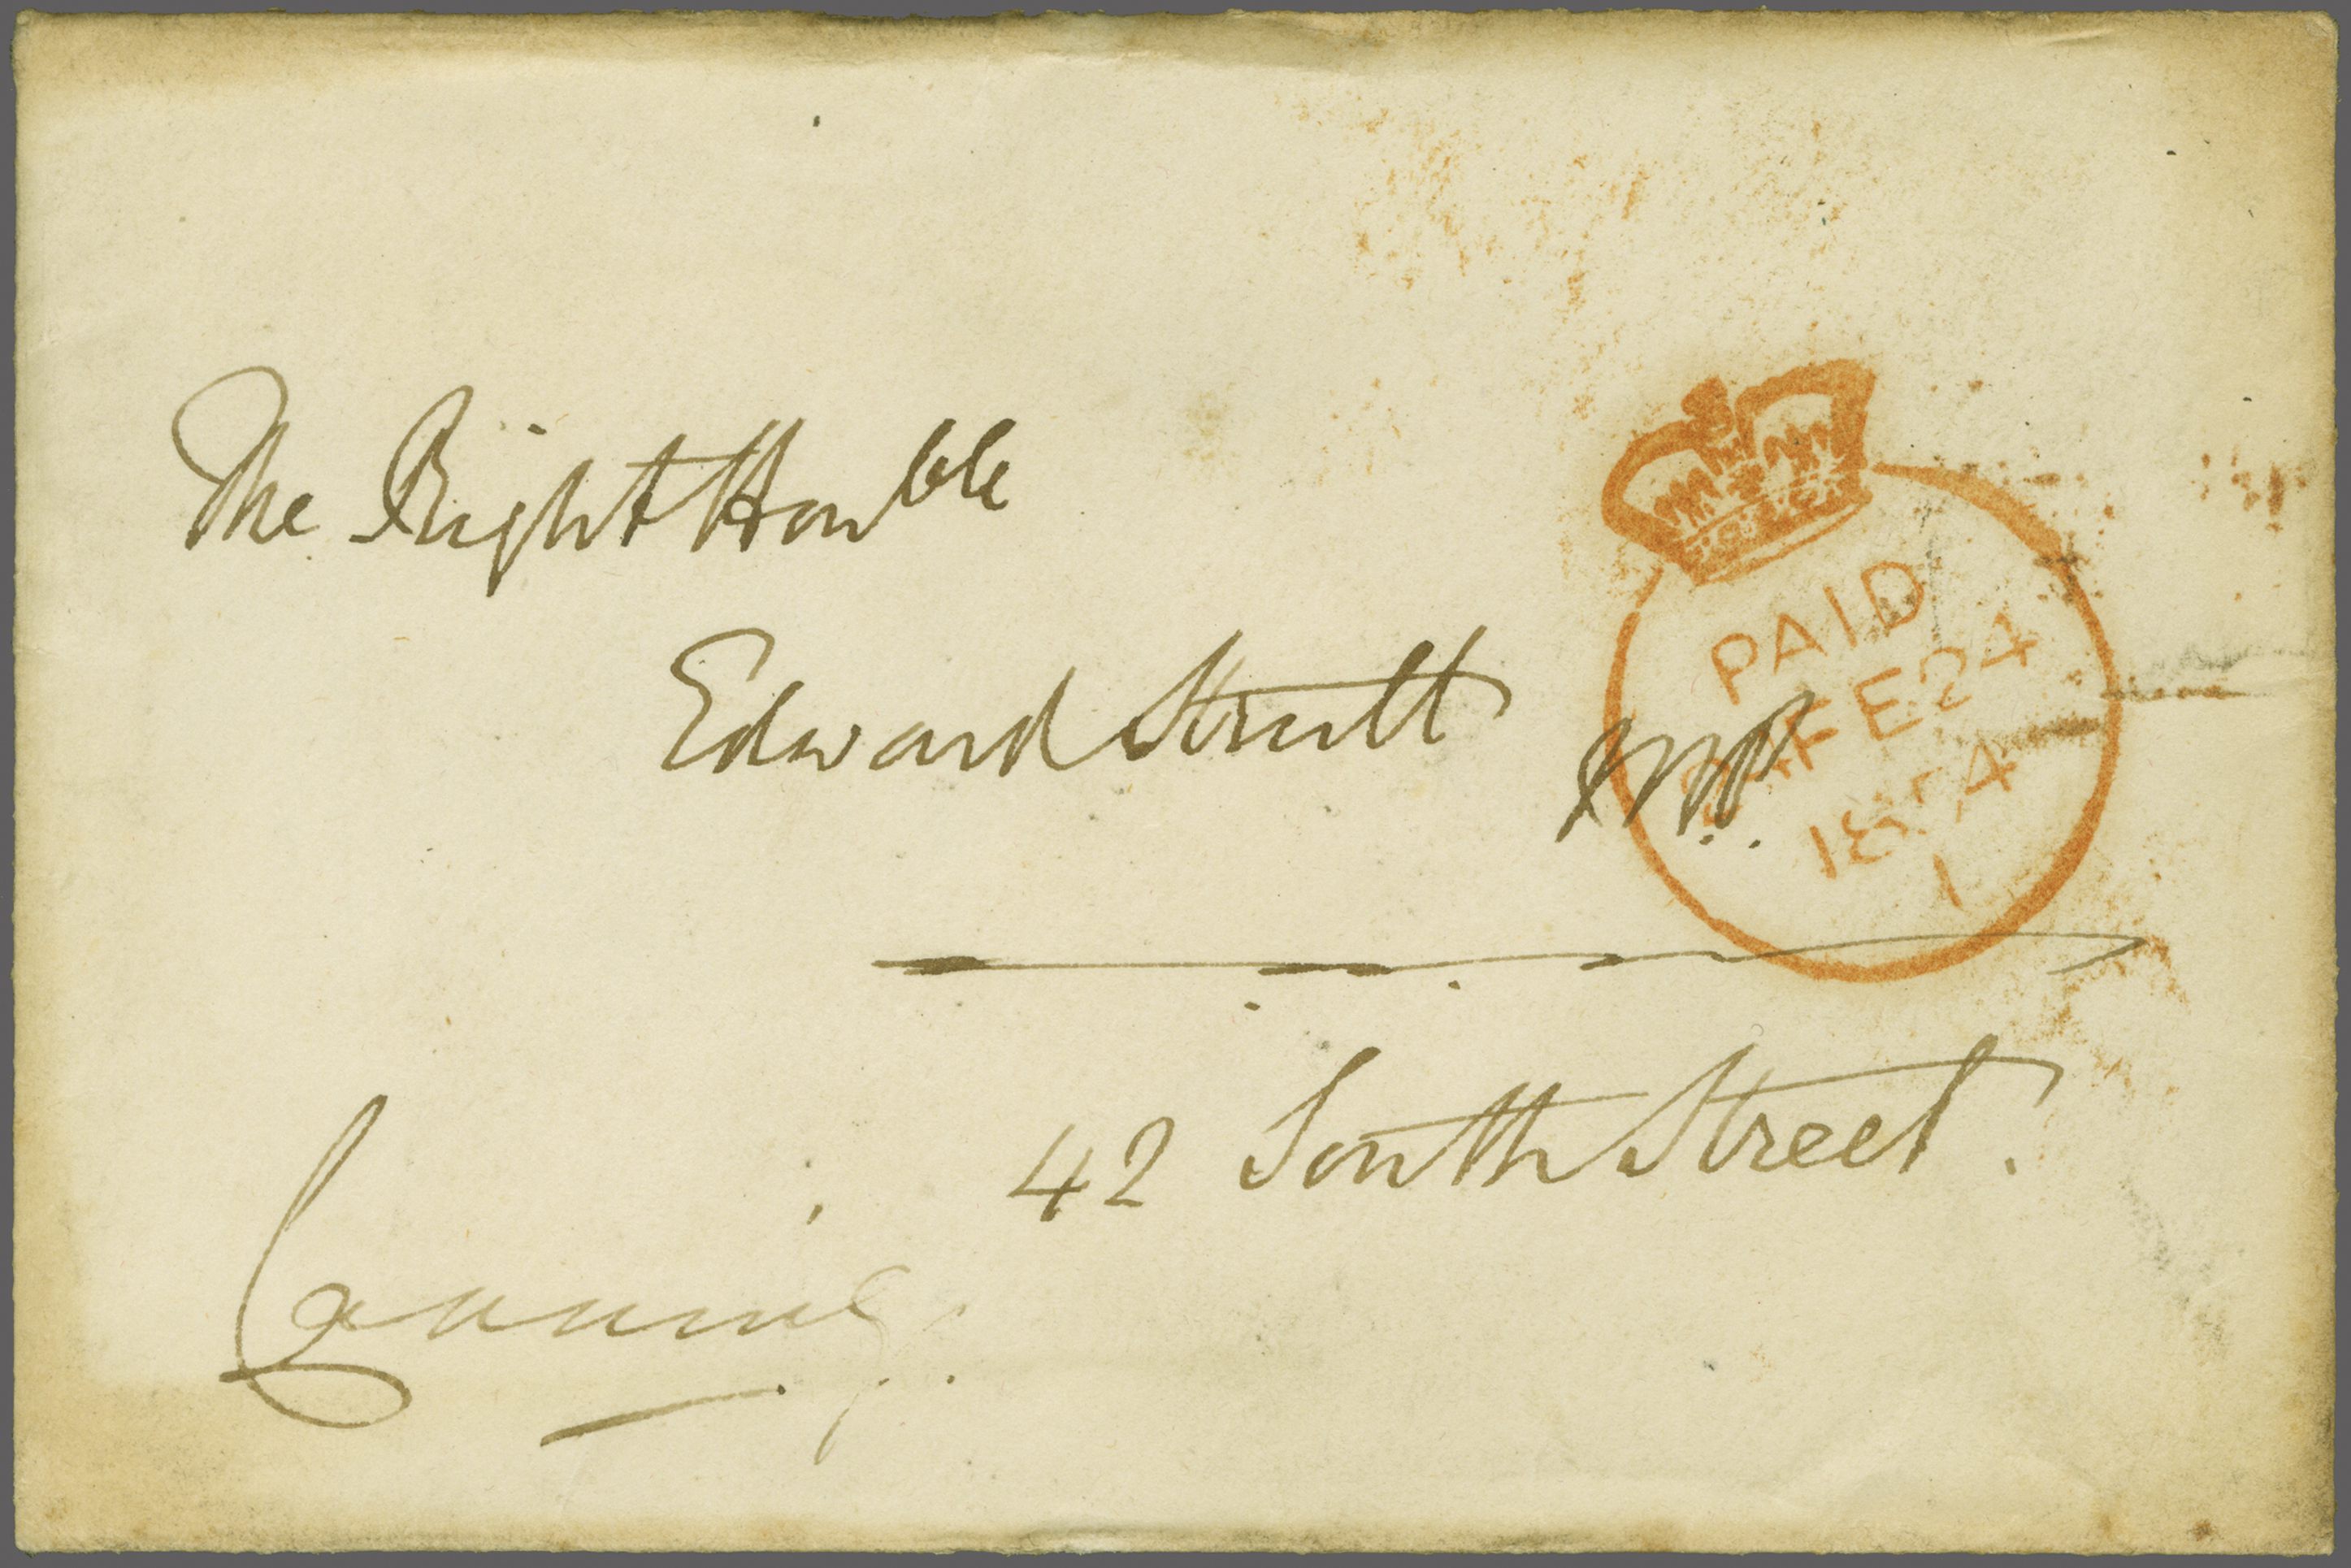 The Right Honble
Edward Strutt M.P.
PAID
FE 24
1854
1
42 South Street.
Canning